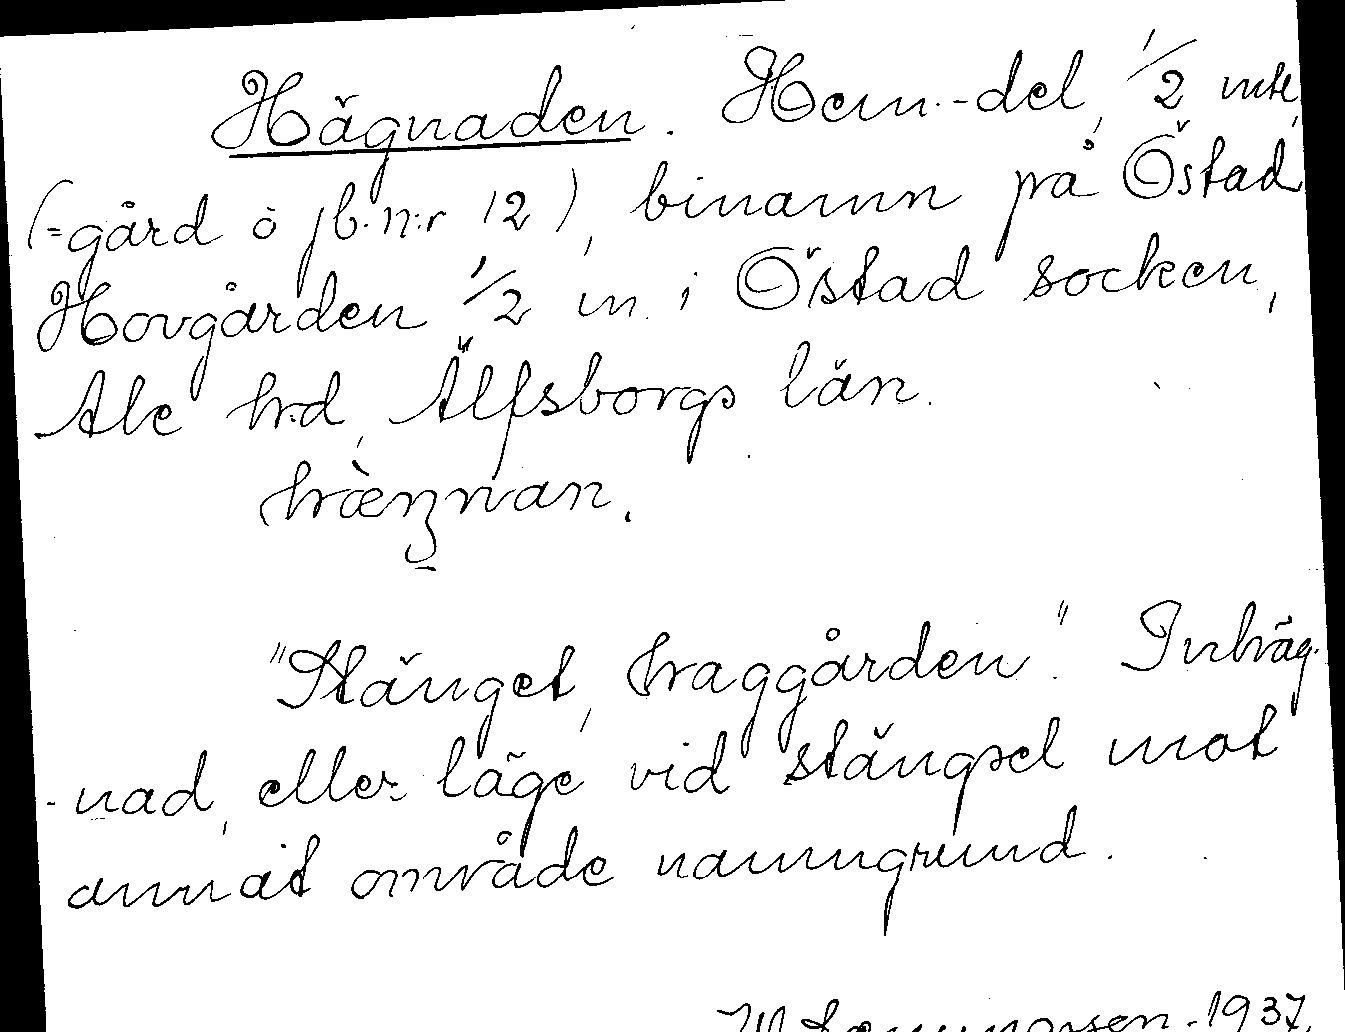 Hägnaden. Hem.-del, 1/2 mtl,
(=gård å jb.n:r 12), binamn på Östad
Hovgården 1/2 m. i Östad socken,
Ale hrd, Älfsborgs län.

"Stänget, haggården". Inhäg-
-nad, eller läge vid stängsel mot
annat område namngrund.
1937.